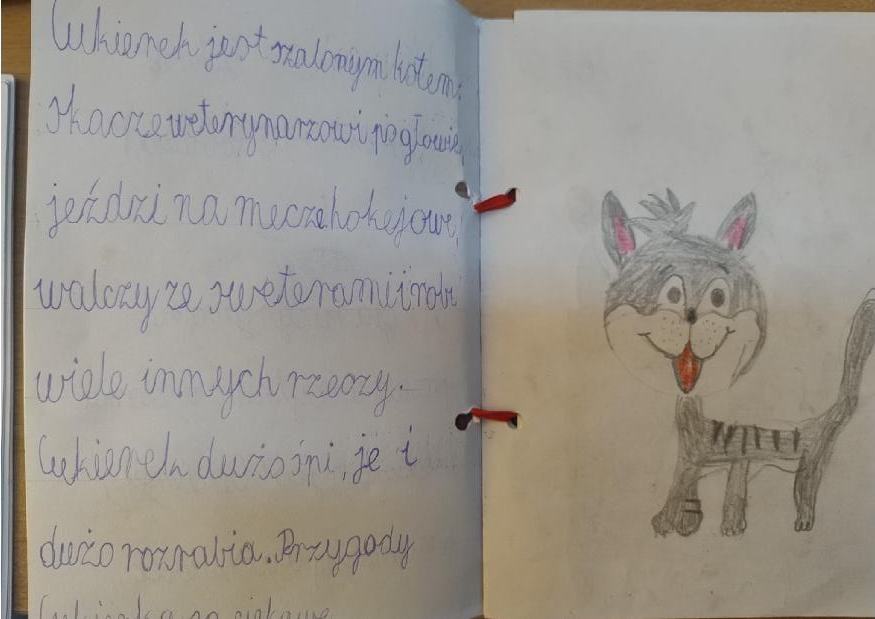 Cukierek jest szalonym kotem:
skacze weterynarzowi po głowie,
jeździ na mecze hokejowe,
walczy ze sweterami i robi
wiele innych rzeczy.
Cukierek dużo śpi, je i
dużo rozrabia. Przygody
Cukierka są ciekawe